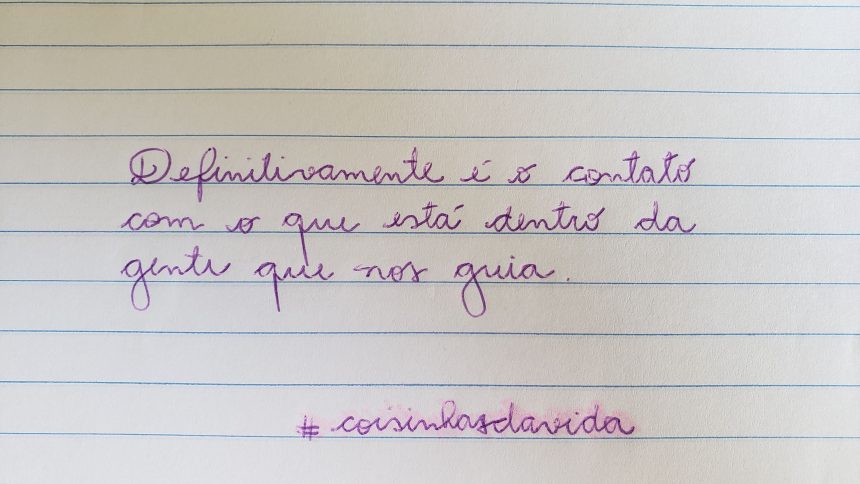 Definitivamente é o contato
com o que está dentro da
gente que nos guia.
# coisinhasdavida